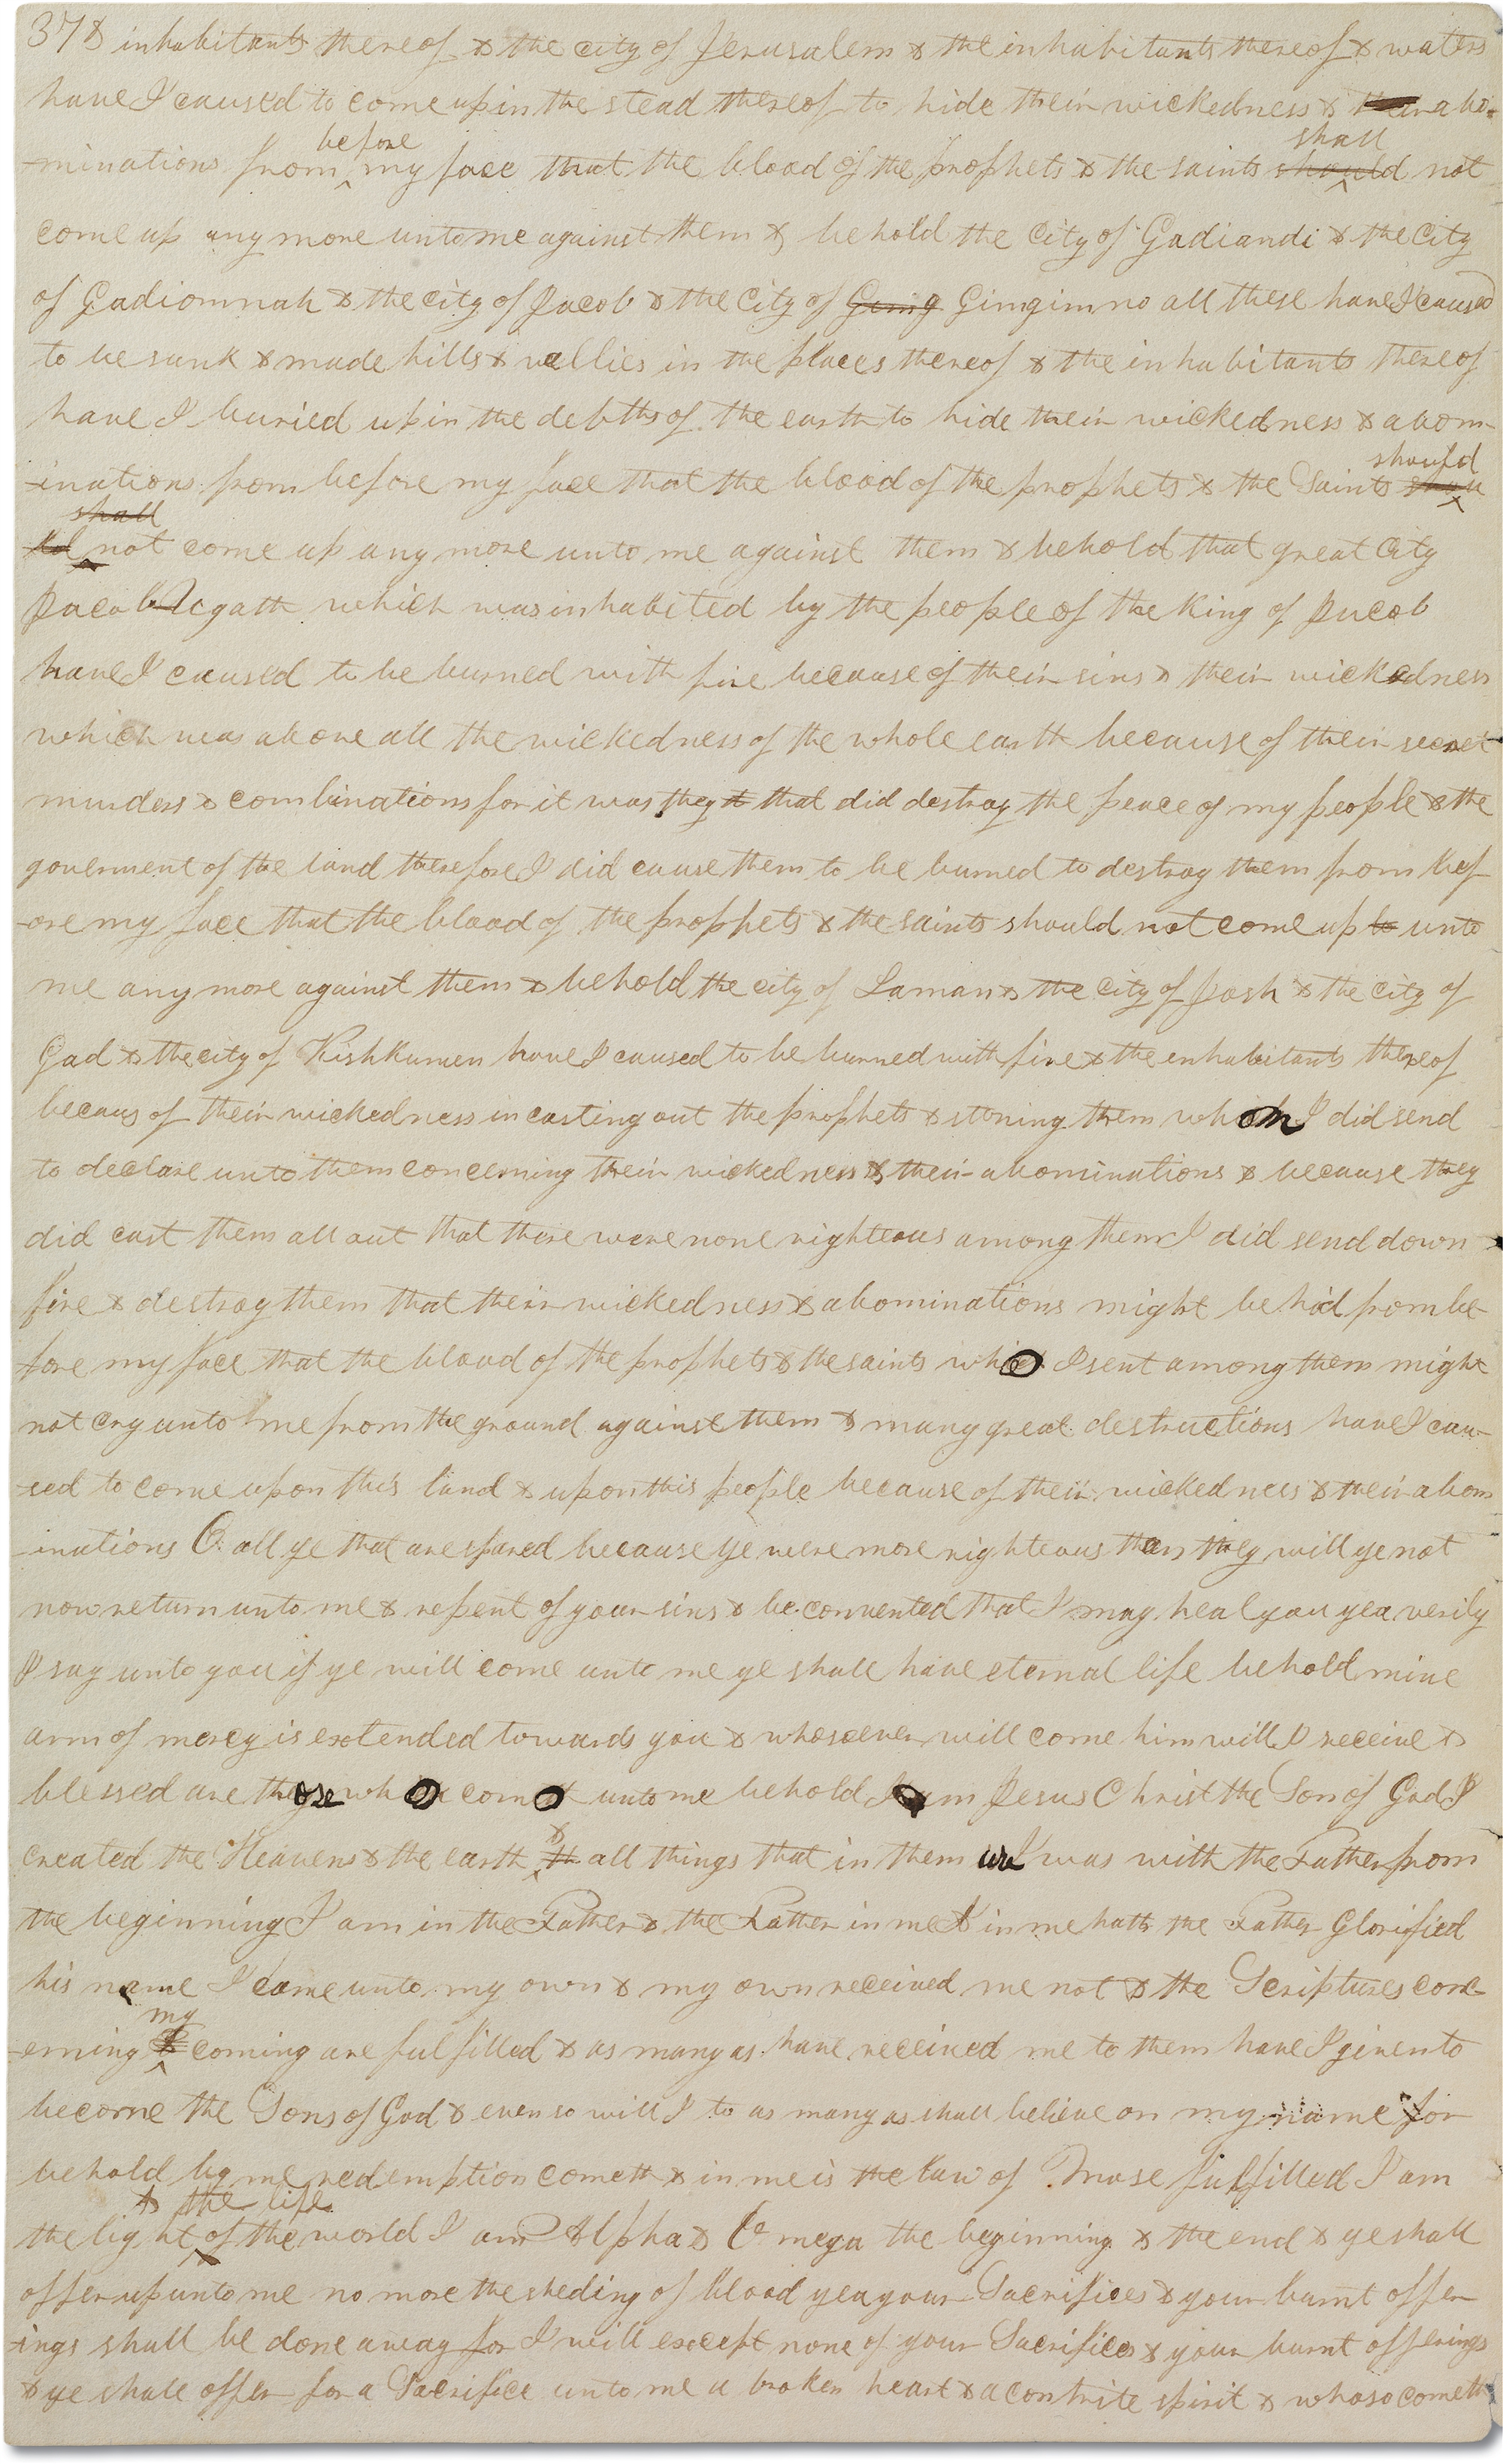 378 inhabitants thereof & the city of Jerusalem & the inhabitants thereof & waters
have I caused to come up in the stead thereof to hide their wickedness & their abo-
before shall
-minations from my face that the blood of the prophets & the saints should not
come up any more unto me against them & behold the city of Gadiandi & the City
of Gadiomnah & the city of Jacob & the City of Gimg Gimgimno all these have I caused
to be sunk & made hills & vallies in the places thereof & the inhabitants thereof
have I buried up in the debths of the earth to hide their wickedness & abom-
should
-inations from before my face that the blood of the prophets & the Saints shou
shall
-ld not come up any more unto me against them & behold that great City
Jacob Ugath which was inhabited by the people of the King of Jacob
have I caused to be burned with fire because of their sins & their wickedness
which was above all the wickedness of the whole earth because of their secret
murders & combinations for it was they th that did destroy the peace of my people & the
government of the land therefore I did cause them to be burned to destroy them from bef
-ore my face that the blood of the prophets & the saints should not come up to unto
me any more against them & behold the city of Laman & the city of Josh & the city of
Gad & the city of Kishkumen have I caused to be burned with fire & the inhabitants thereof
becaus of their wickedness in casting out the prophets & stoning them whom I did send
to declare unto them concerning their wickedness & their abominations & because they
did cast them all out that there were none righteous among them I did send down
fire & destroy them that their wickedness & abominations might be hid from be-
fore my face that the blood of the prophets & the saints who I sent among them might
not cry unto me from the ground against them & many great destructions have I cau-
-sed to come upon this land & upon this people because of their wickedness & their abom
-inations O all ye that are spared because ye were more righteous than they will ye not
now return unto me & repent of your sins & be converted that I may heal you yea verily
I say unto you if ye will come unto me ye shall have eternal life behold mine
arm of mercy is extended towards you & whosoever will come him will I receive &
blessed are those who come unto me behold I am Jesus Christ the Son of God I
&
created the Heavens & the earth th all things that in them are I was with the Father from
the beginning I am in the Father & the Father in me & in me hath the Father Glorified
his name I came unto my own & my own received me not & the Scriptures conc
my
-erning coming are fulfilled & as many as have received me to them have I given to
become the Sons of God & even so will I to as many as shall believe on my name for
behold by me redemption cometh & in me is the law of Mose fulfilled I am
& the life
the light of the world I am Alpha & Omega the beginning & the end & ye shall
offer up unto me no more the sheding of blood yea your Sacrifices & your burnt offer
-ings shall be done away for I will except none of your Sacrifices & your burnt offerings
& ye shall offer for a Sacrifice unto me a broken heart & a contrite spirit & whoso cometh